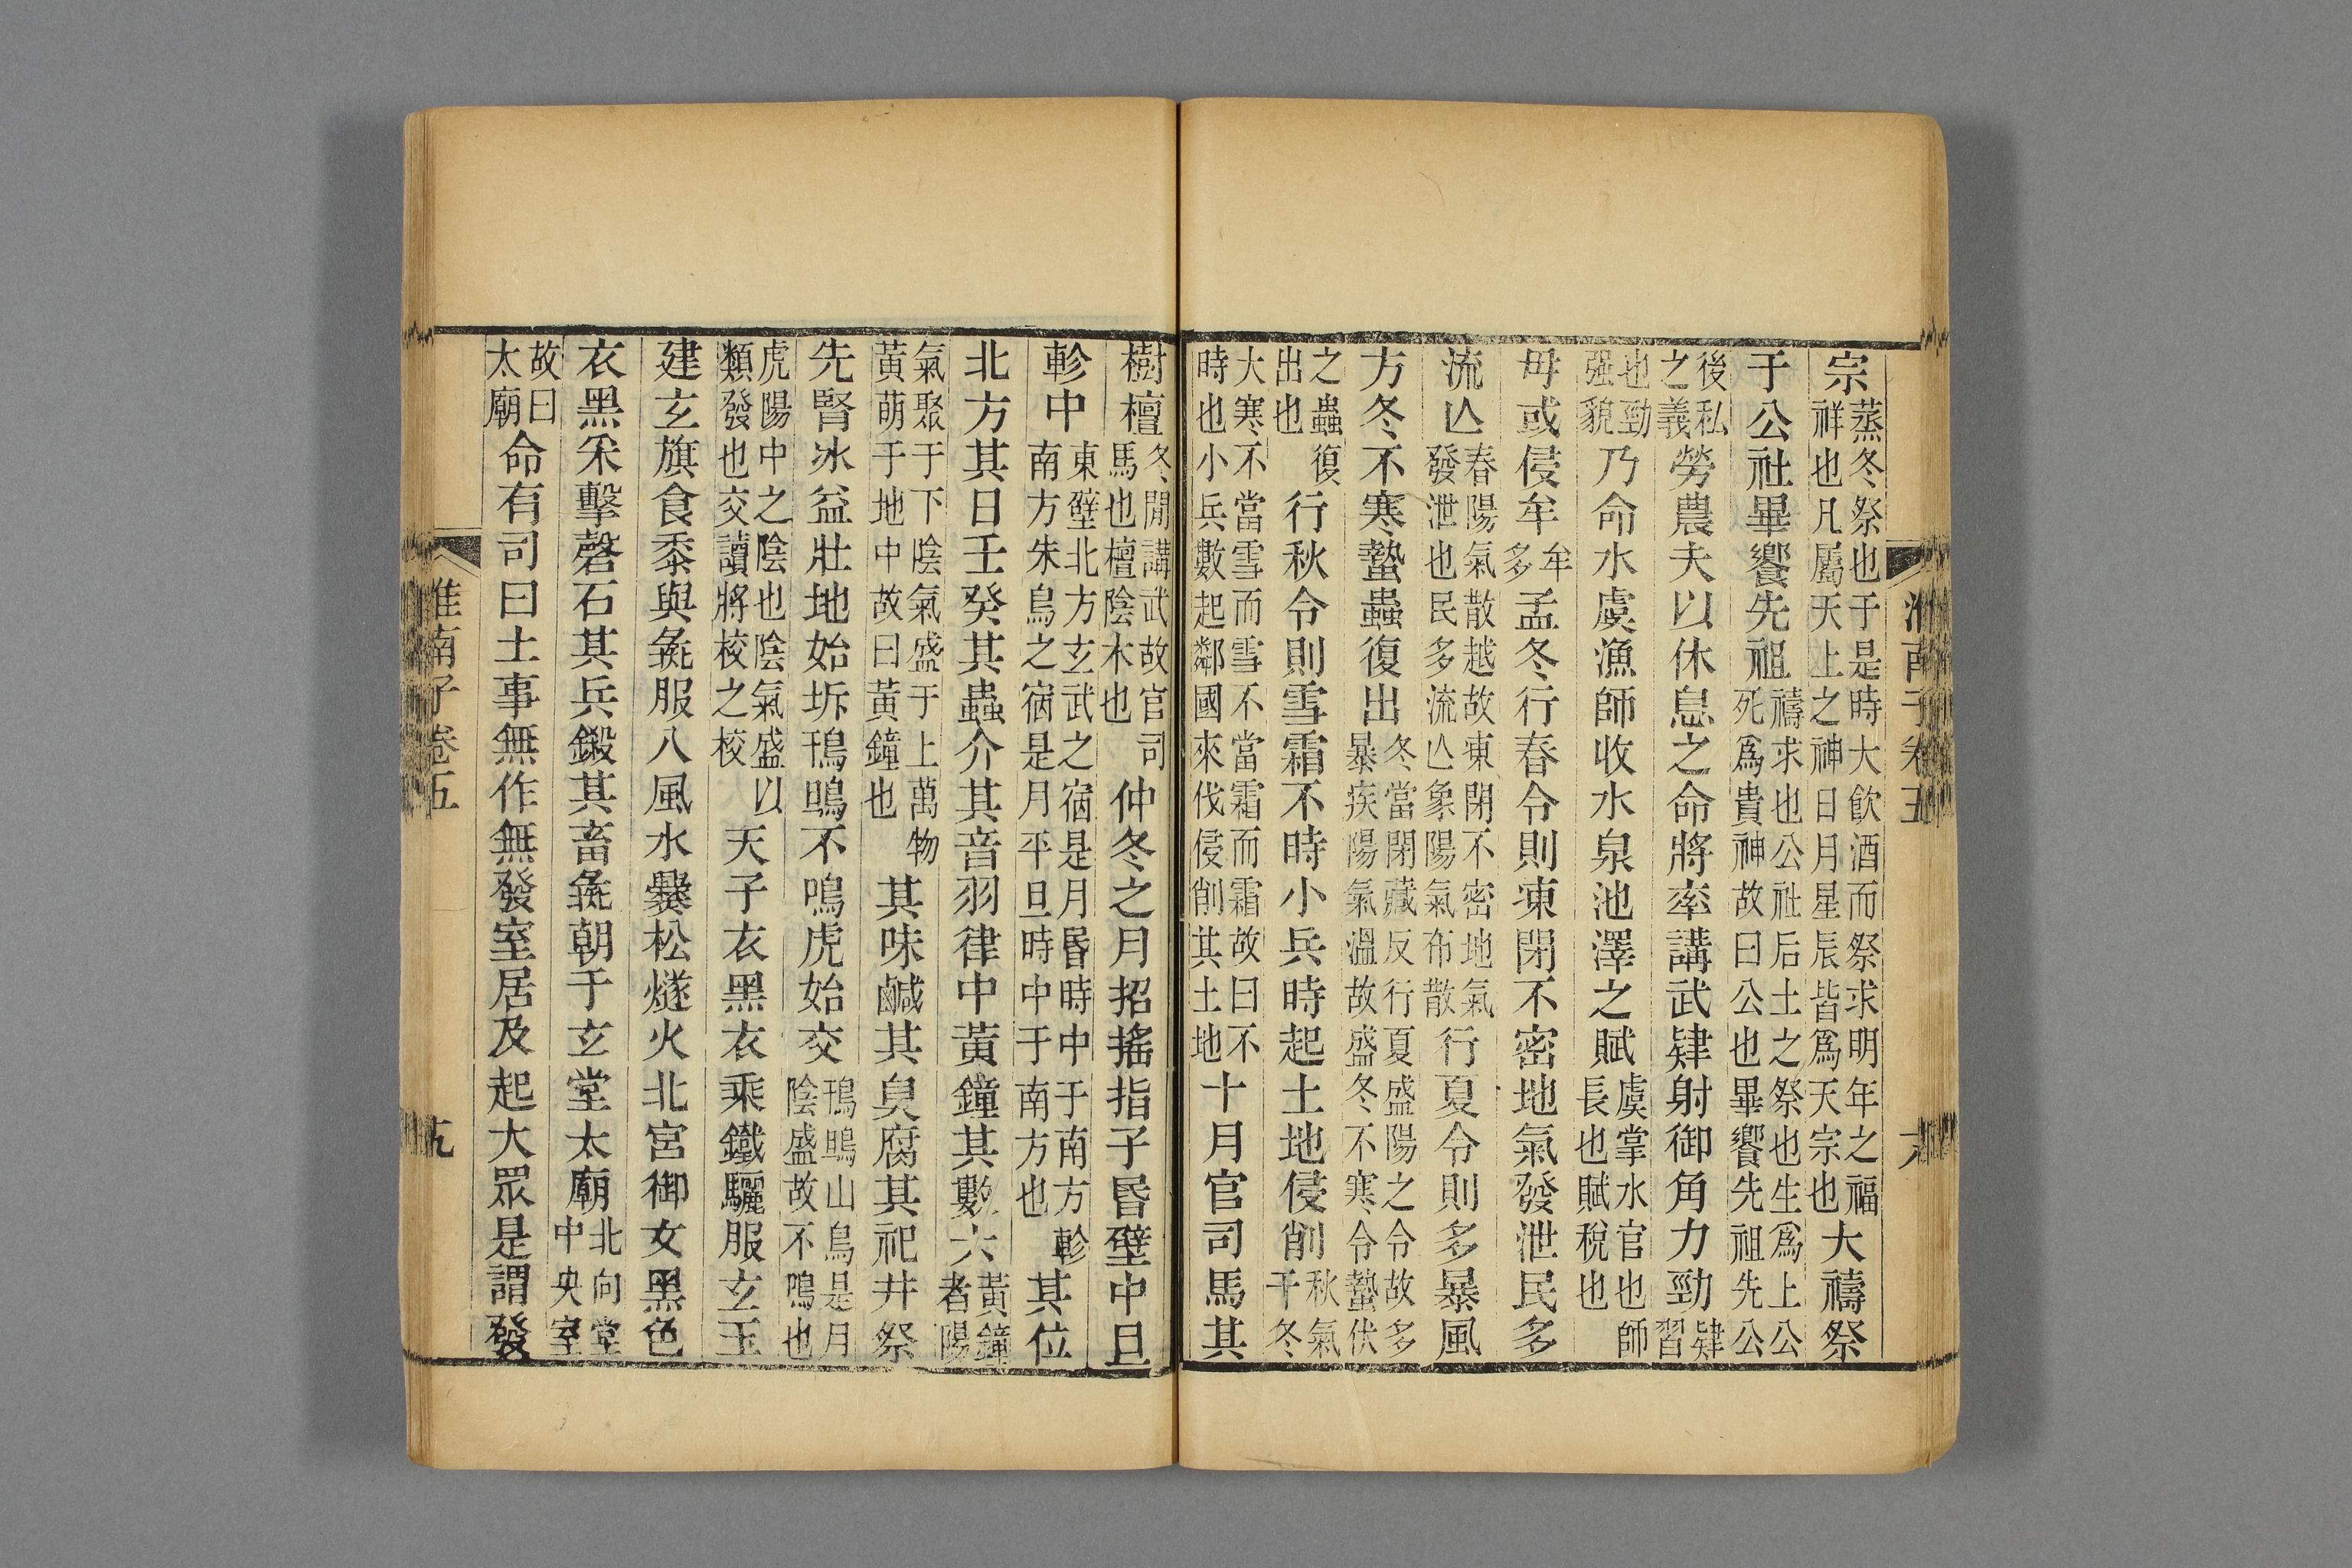 淮南子卷五
宗蒸冬祭也于是時大飲酒而祭求明年之福祥也凡屬天上之神日月星辰皆爲天宗也大禱祭
于公社畢饗先祖禱求也公社后土之祭也生爲上公死爲貴神故曰公也畢饗先祖先公
後私之義勞農夫以休息之命將率講武肄射御角力勁肄習
也勁强貌乃命水虞漁師收水泉池澤之賦虞掌水官也師長也賦稅也
毋或侵牟牟多孟冬行春令則凍閉不密地氣發泄民多
流亾春陽氣散越故凍閉不密地氣發泄也民多流亾象陽氣布散行夏令則多暴風
方冬不寒蟄蟲復出冬當閉藏反行夏盛陽之令故多暴疾陽氣溫故盛冬不寒令蟄伏
之蟲復出也行秋令則雪霜不時小兵時起土地侵削秋氣干冬
大寒不當雪而雪不當霜而霜故曰不時也小兵數起鄰國來伐侵削其土地十月官司馬其
樹檀冬閒講武故官司馬也檀陰木也仲冬之月招搖指子昏壁中旦
軫中東壁北方玄武之宿是月昏時中于南方軫南方朱鳥之宿是月平旦時中于南方也其位
北方其日壬癸其蟲介其音羽律中黃鐘其數六黃鐘者陽
氣聚于下陰氣盛于上萬物黃萌于地中故曰黃鐘也其味鹹其臭腐其祀井祭
先腎冰益壯地始坼鳱鴠不鳴虎始交鳱鴠山鳥是月陰盛故不鳴也
虎陽中之陰也陰氣盛以類發也交讀將校之校天子衣黑衣乘鐵驪服玄玉
建玄旗食黍與彘服八風水爨松燧火北宮御女黑色
衣黑采擊磬石其兵鎩其畜彘朝于玄堂太廟北向堂中央室
故曰太廟命有司曰土事無作無發室居及起大眾是謂發
淮南子卷五